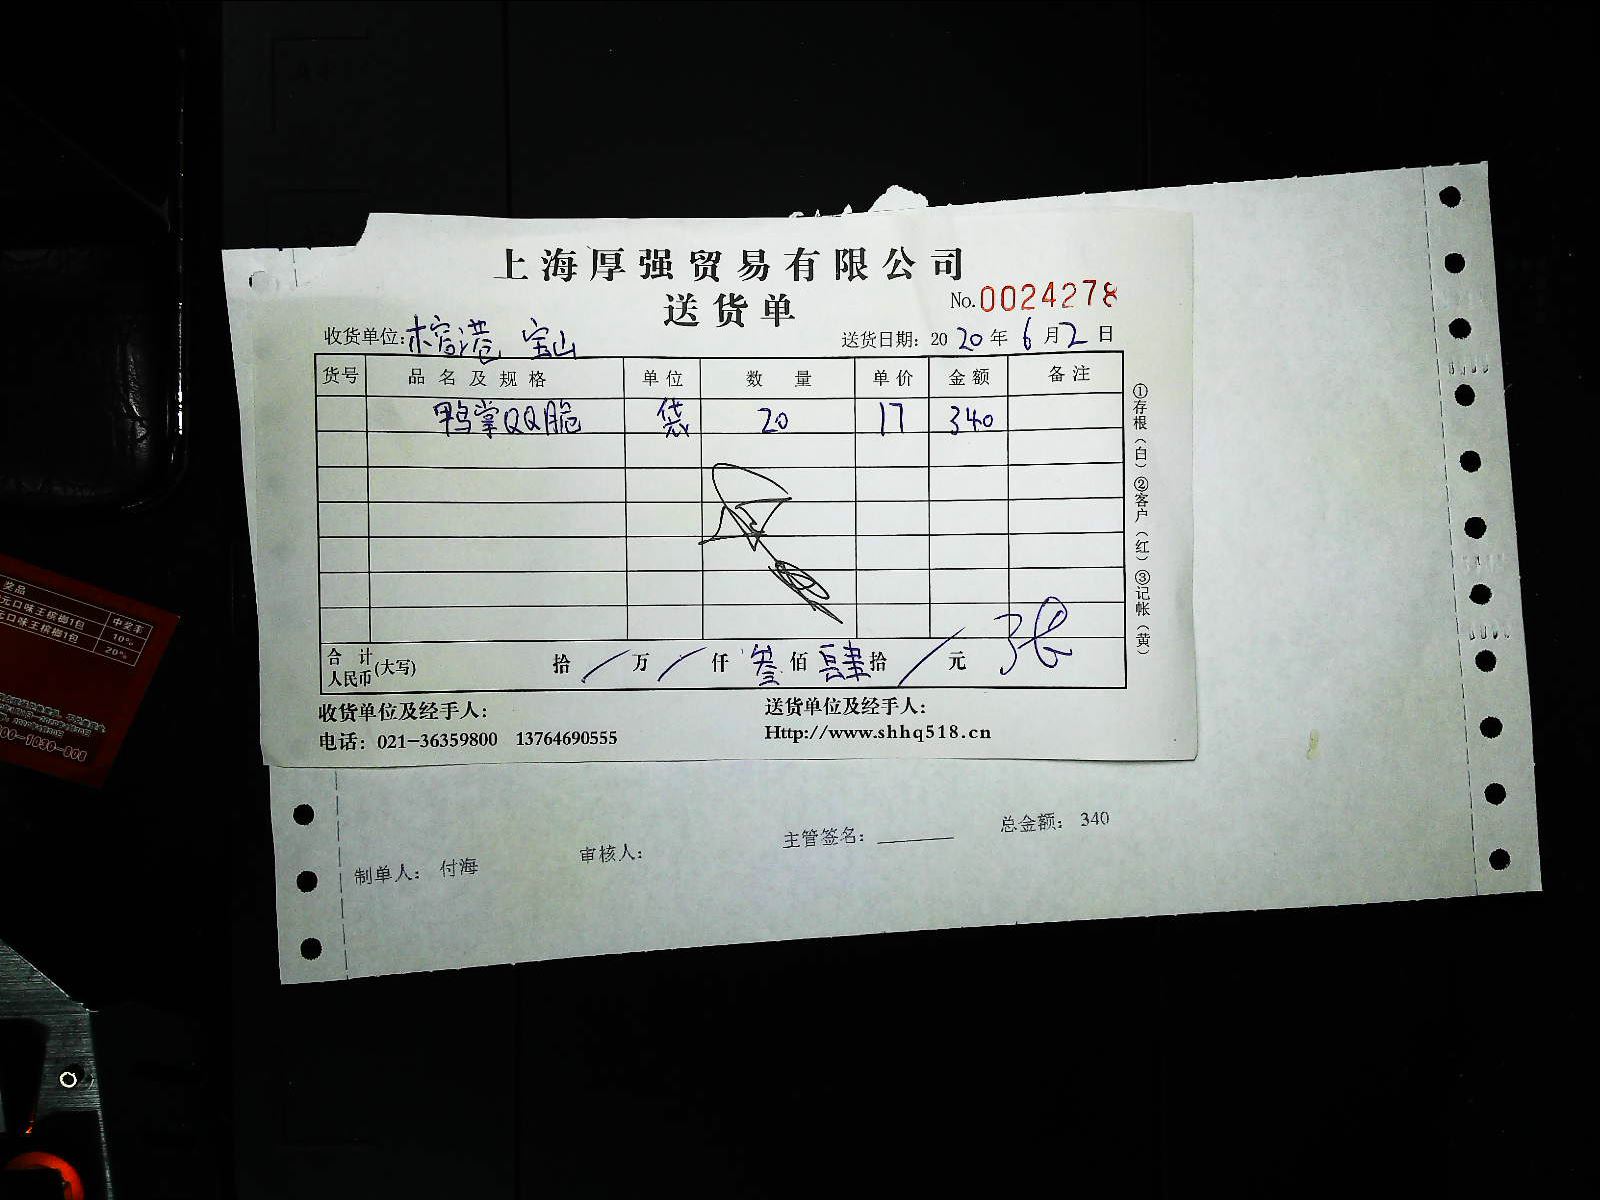 上海厚强贸易有限公司
送货单
No.0024278
收货单位:榕港 宝山
送货日期: 2020年6月2日
货号 品名及规格 单位 数量 单价 金额 备注
鸭掌QQ脆 袋 20 17 340
合计人民币(大写) 拾/万/仟叁佰肆拾/元
①存根(白)②客户(红)③记帐(黄)
收货单位及经手人:
送货单位及经手人:
电话: 021-36359800 13764690555
Http://www.shhq518.cn
制单人: 付海
审核人:
主管签名:
总金额: 340
奖品 中奖率
元口味王槟榔1包 10%
元口味王槟榔1包 20%